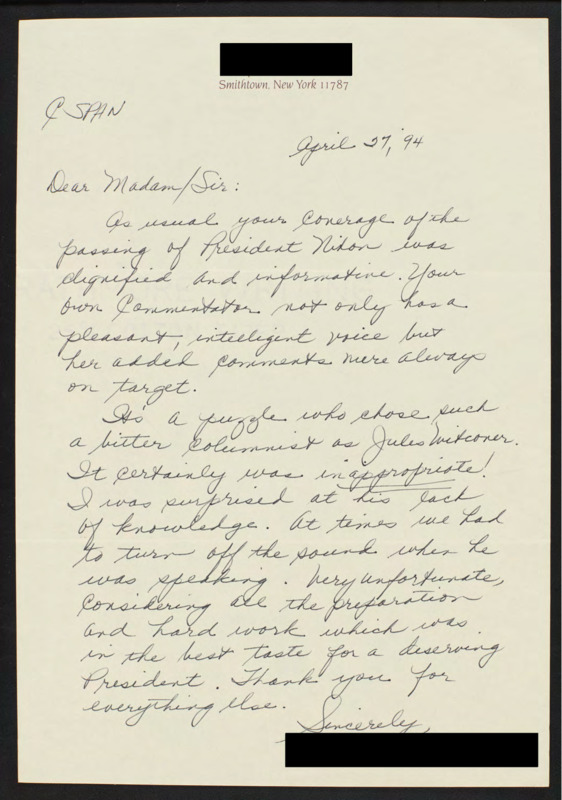 Smithtown, New York 11787
C SPAN
April 27, '94
Dear Madam/Sir:
As usual your coverage of the
passing of President Nixon was
dignified and informative. Your
own Commentator not only has a
pleasant, intelligent voice but
her added comments were always
on target.
It's a puzzle who chose such
a bitter columnist as Jules Witconer.
It certainly was inappropriate!
I was surprised at his lack
of knowledge. At times we had
to turn off the sound when he
was speaking. Very unfortunate,
Considering all the preparation
and hard work which was
in the best taste for a deserving
President. Thank you for
everything else.
Sincerely,